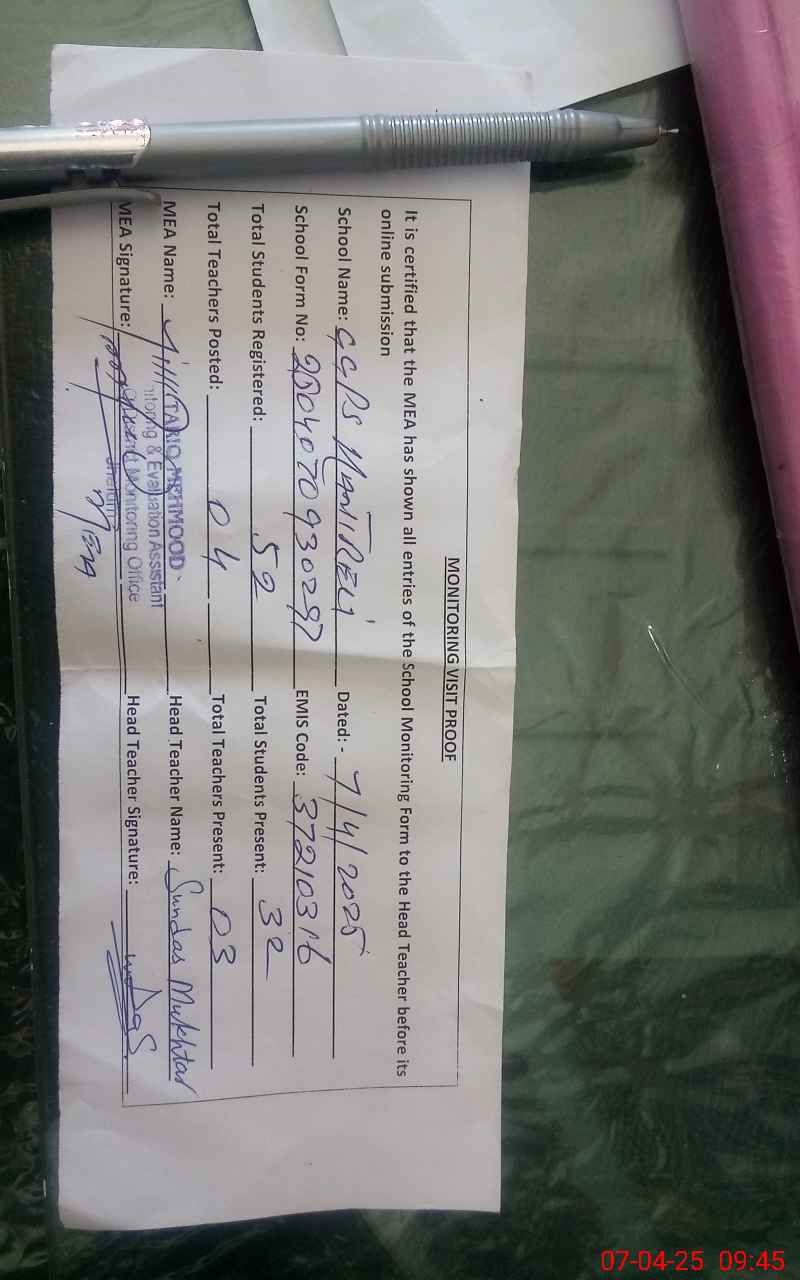 MONITORING VISIT PROOF
It is certified that the MEA has shown all entries of the School Monitoring Form to the Head Teacher before its
online submission
School Name: GGPS Dated: - 7/4/2025
School Form No: EMIS Code: 37210316
Total Students Registered: 52 Total Students Present: 32
Total Teachers Posted: 04 Total Teachers Present: 03
MEA Name: TARIQ MEHMOOD Head Teacher Name: Sundas Mukhtar
Monitoring & Evaluation Assistant
MEA Signature: Monitoring Office Head Teacher Signature:
07-04-25 09:45